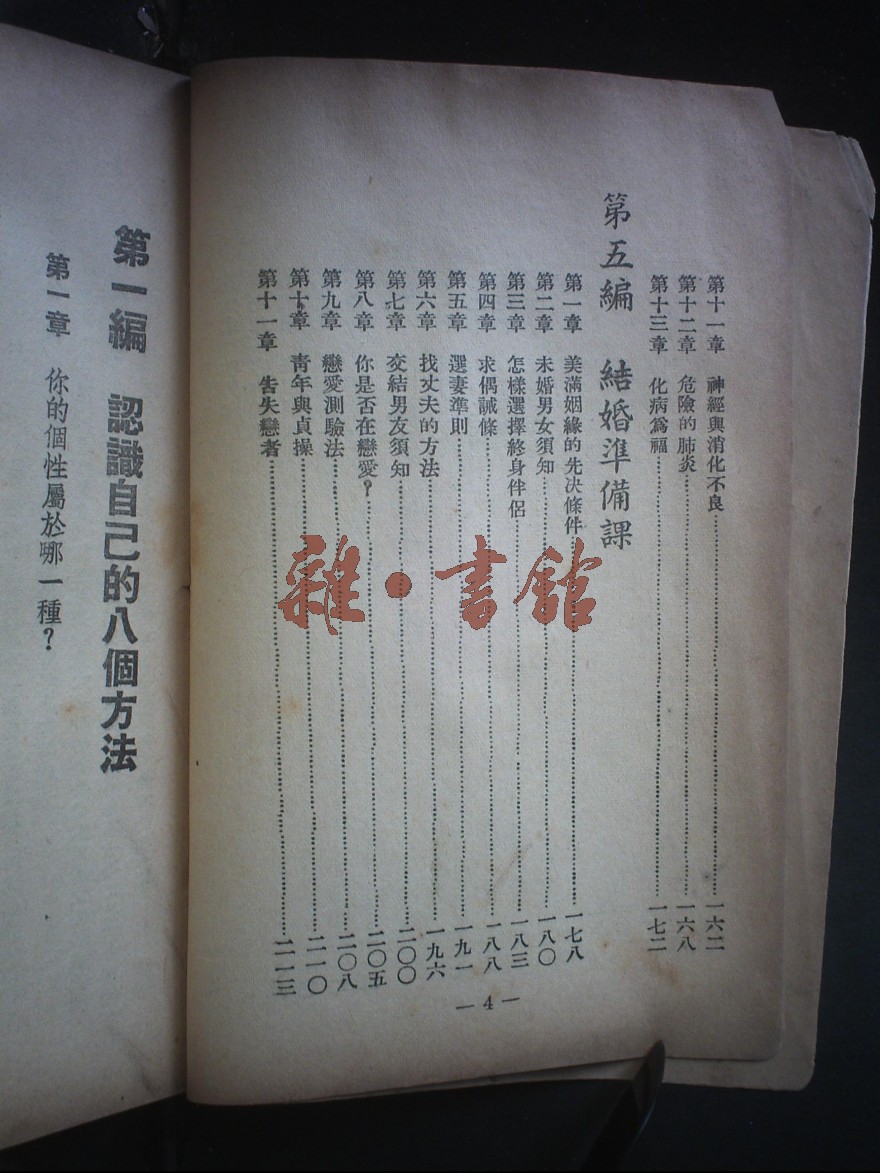 第十一章 神經與消化不良 一六二
第十二章 危險的肺炎 一六八
第十三章 化病爲福 一七二
第五編 結婚準備課
第一章 美滿姻緣的先決條件 一七八
第二章 未婚男女須知 一八〇
第三章 怎樣選擇終身伴侶 一八三
第四章 求偶誡條 一八八
第五章 選妻準則 一九一
第六章 找丈夫的方法 一九六
第七章 交結男友須知 二〇〇
第八章 你是否在戀愛? 二〇五
第九章 戀愛測驗法 二〇八
第十章 靑年與貞操 二一〇
第十一章 吿失戀者 二一三
—4—
第一編 認識自己的八個方法
第一章 你的個性屬於哪一種?
雜·書館